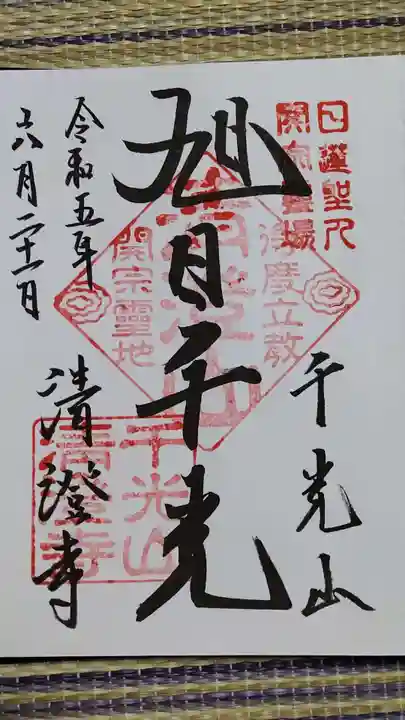 日蓮聖人
開宗霊場
千光山
旭日千光
清澄山
後慶立教
開宗霊地
千光山
清澄寺
令和五年
六月二十一日
清澄寺